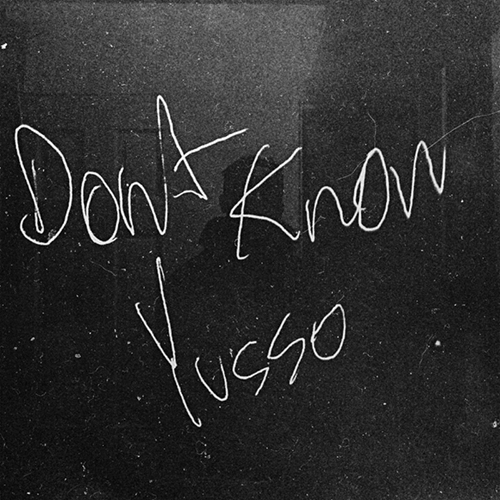 Don't Know
Yusso